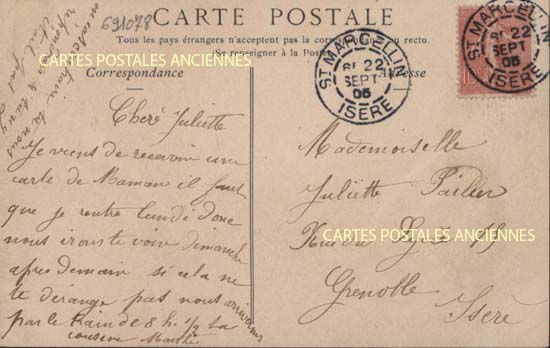 691078
CARTE POSTALE
Tous les pays étrangers n'acceptent pas la correspondance au recto.
Se renseigner à la Poste
Correspondance
Adresse
CARTES POSTALES ANCIENNES
Cherè Juliette
Je viens de recevoir une
carte de Maman il faut
que je rentre lundi donc
nous irons te voir dimanche
apres demain si cela ne
te dérange pas nous arriverons
par le train de 8 h. 1/2 ta
cousine
ST MARCELLIN
22
SEPT
05
ISÈRE
ST MARCELLIN
22
SEPT
05
ISÈRE
10
Mademoiselle
Juliette
CARTES POSTALES ANCIENNES
19
Grenoble
Isère